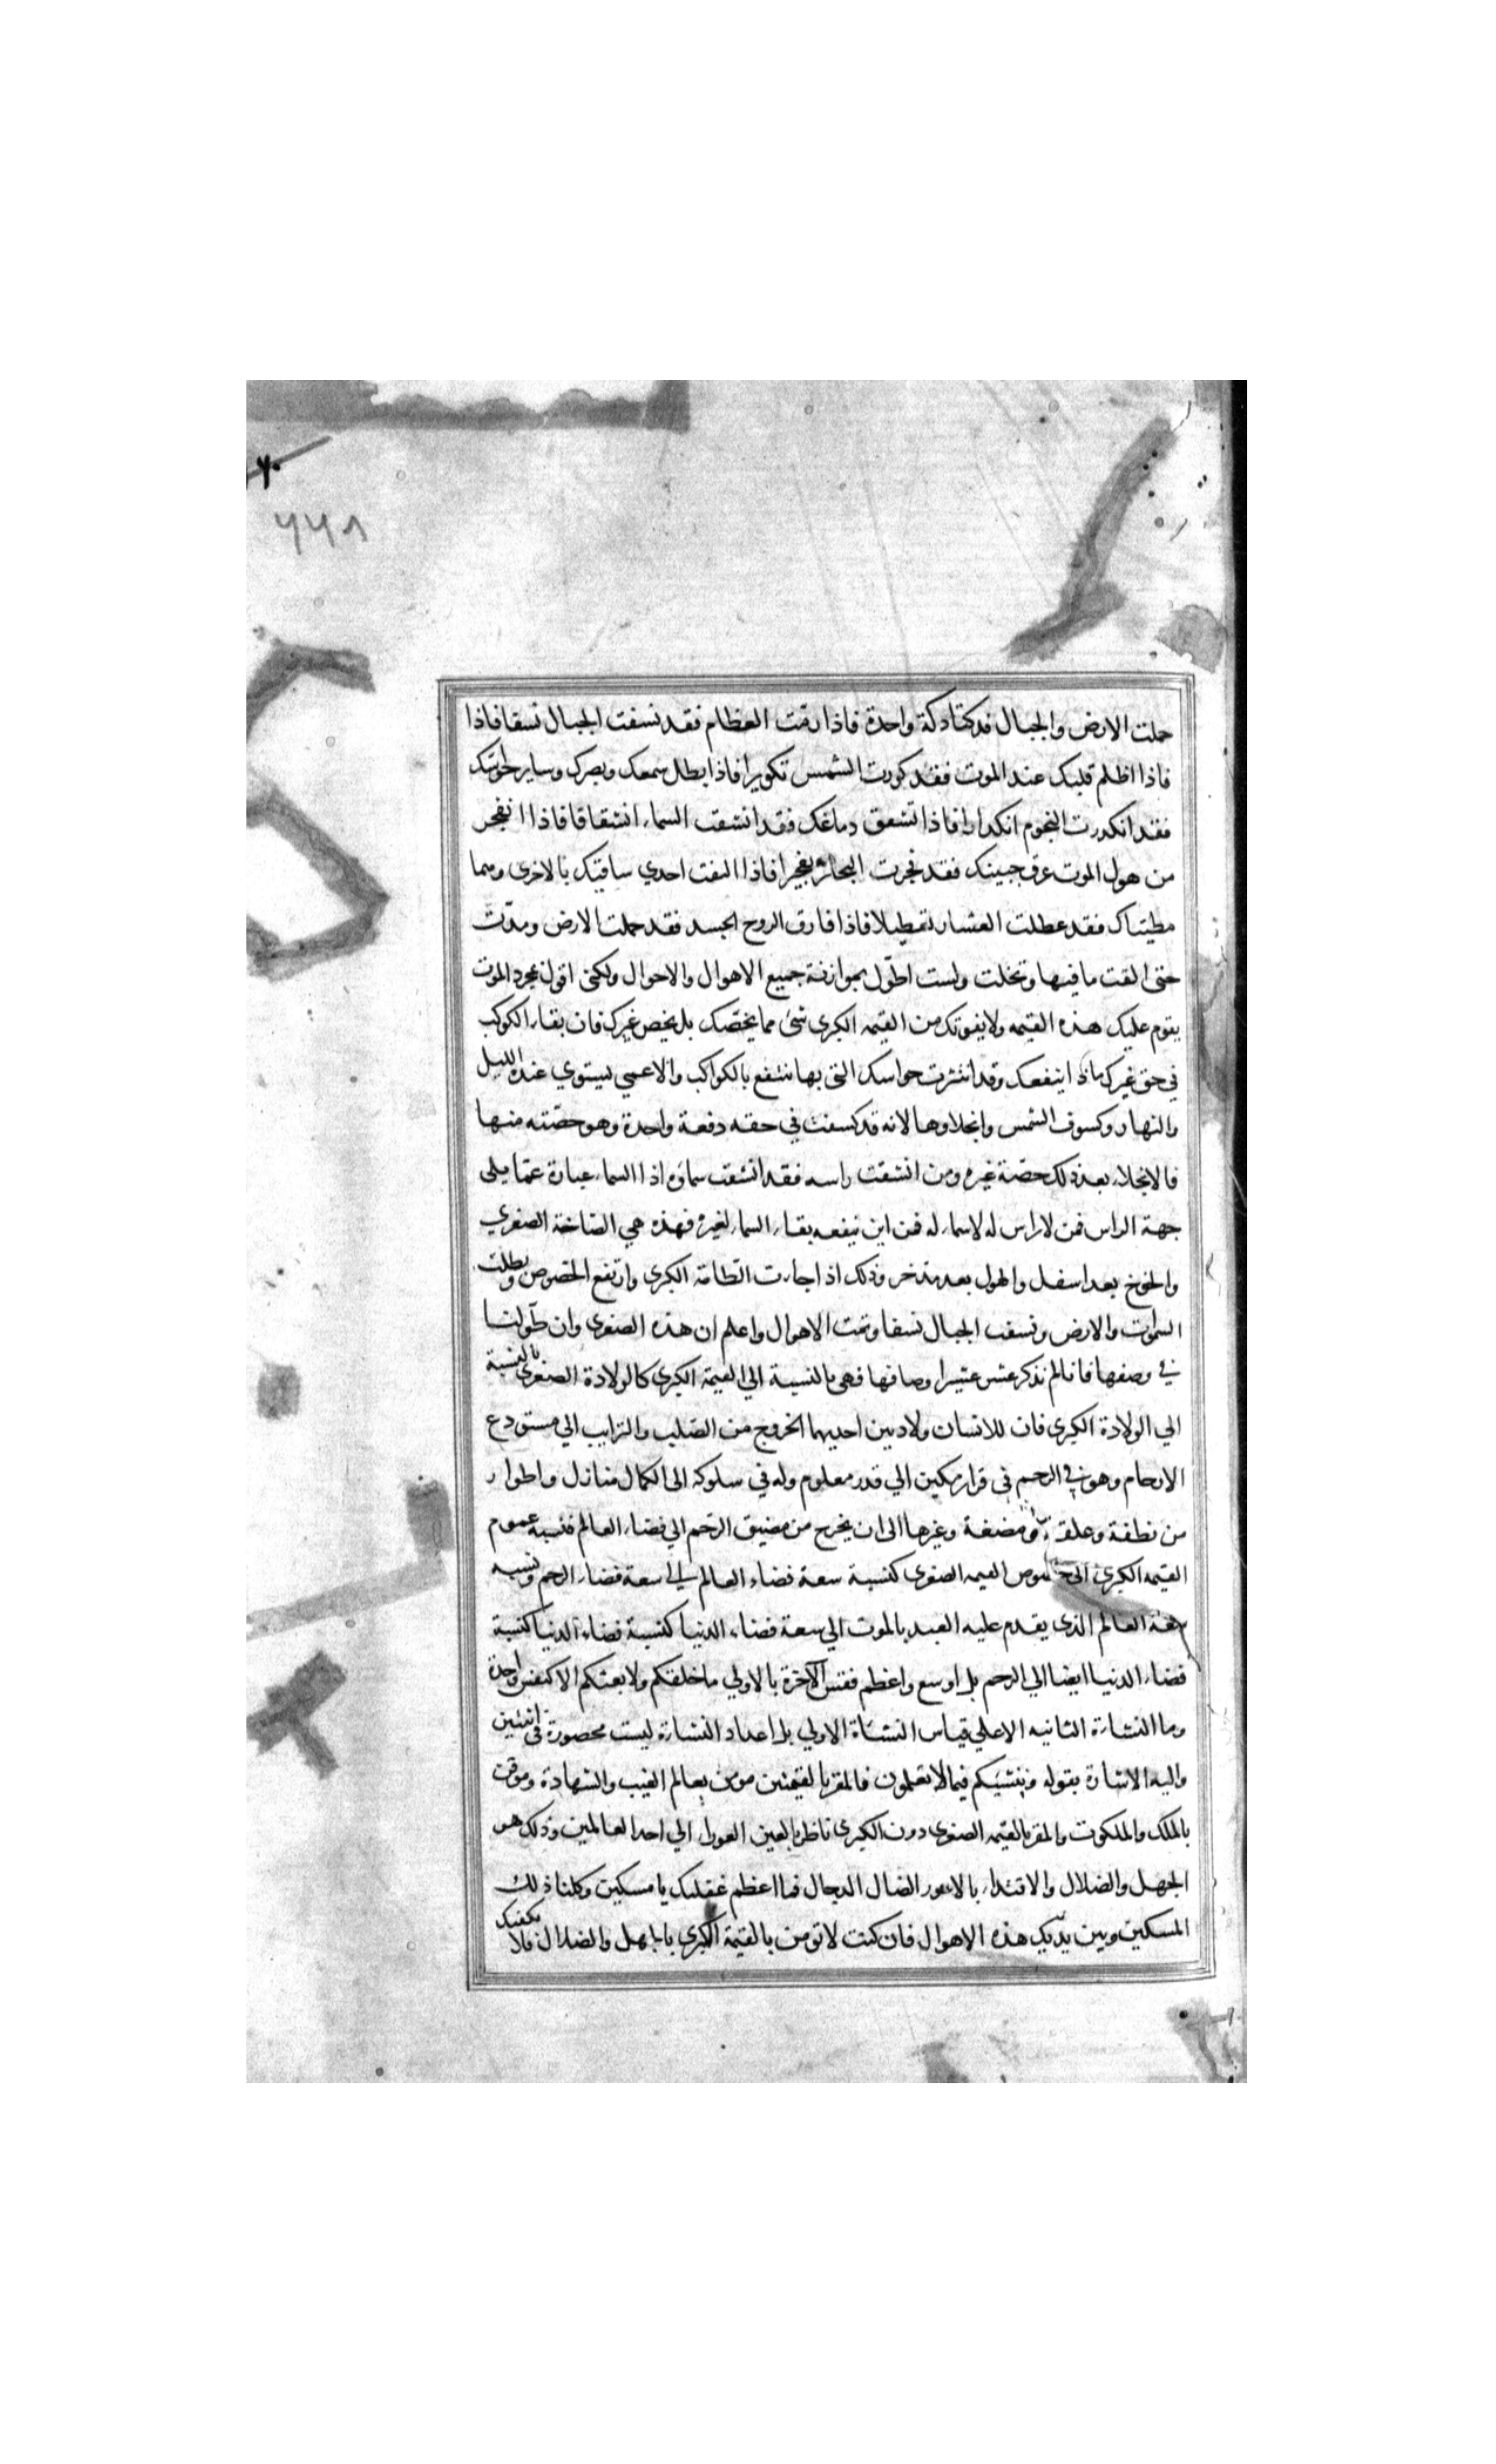 ٢٠
٤٤٨
حملت الارض والجبال فدكتا دكة واحدة فاذا رمت العظام فقد نسفت الجبال نسفا فاذا
فاذا اظلم قلبك عند الموت فقد كورت الشمس تكويرا فاذا بطل سمعك وبصرك وساير حواسك
فقد انكدرت النجوم انكدارا فاذا تشعق دماغك فقد انشقت السماء انشقاقا فاذا انفجر
من هول الموت عرق جبينك فقد فجرت البحار تفجيرا فاذا التفت احدي ساقيك بالاخرى وهما
مطيتاك فقد عطلت العشار تعطيلا فاذا فارق الروح الجسد فقد حملت الارض ومدّت
حتى القت ما فيها وتخلت ولست اطوّل بموازنة جميع الاهوال والاحوال ولكنى اقول بمجرد الموت
يقوم عليك هذه القيمه ولا يفوتك من القيمه الكبرى شئ مما يخصّك بل يخص غيرك فان بقاء الكوكب
في حق غيرك ماذا ينفعك وقد انتثرت حواسك التى بها تنتفع بالكواكب والاعمى يستوي عنده الليل
والنهار وكسوف الشمس وانجلاوها لانه قد كسفت في حقه دفعة واحدة وهو حصّته منها
فالانجلاء بعد ذلك حصّة غيره ومن انشقت راسه فقد انشقت سماؤه اذا السماء عبارة عمّا يلى
جهة الراس فمن لا راس له لا سماء له فمن اين ينفعه بقاء السماء لغيره فهذه هي الصّاخة الصغري
والخوخ بعد اسفل والهول بعد مدخر وذلك اذا جاءت الطّامة الكبرى وارتفع الخصوص وبطلت
السموات والارض ونسفت الجبال نسفا وتمت الاهوال واعلم ان هذه الصغرى وان طوّلنا
في وصفها فانا لم نذكر عشر عشير اوصافها فهى بالنسبة الي القيمة الكبرى كالولادة الصغرى بالنسبة
الي الولادة الكبرى فان للانسان ولادتين احديهما الخروج من الصّلب والترايب الي مستودع
الارحام وهو في الرحم في قرار مكين الي قدر معلوم وله في سلوكه الى الكمال منازل واطوار
من نطفة وعلقة ومضغة وغيرها الى ان يخرج من مضيق الرّحم الي فضاء العالم فنسبة عموم
القيمه الكبرى الى خصوص القيمه الصغرى كنسبة سعة فضاء العالم الى سعة فضاء الرحم ونسبه
سعة العالم الذى يقدم عليه العبد بالموت الي سعة فضاء الدنيا كنسبة فضاء الدنيا كنسبة
فضاء الدنيا ايضا الي الرحم بل اوسع واعظم فقس الآخرة بالاولي ما خلقكم ولا بعثكم الا كنفس واحدة
وما النشاءة الثانيه الا علي قياس النشأة الاولي بل اعداد النشاءة ليست محصورة في اثنين
واليه الاشارة بقوله وننشيئكم فيما لا تعلمون فالمقر بالقيمتين مومن بعالم الغيب والشهادة وموقن
بالملك والملكوت والمقر بالقيمه الصغرى دون الكبرى ناظر بالعين العورا الي احد العالمين وذلك هو
الجهل والضلال والاقتداء بالاعور الضال الدجال فما اعظم غفلتك يا مسكين وكلنا ذلك
المسكين وبين يديك هذه الاهوال فان كنت لا تومن بالقيمة الكبرى بالجهل والضلال فلا يكفيك